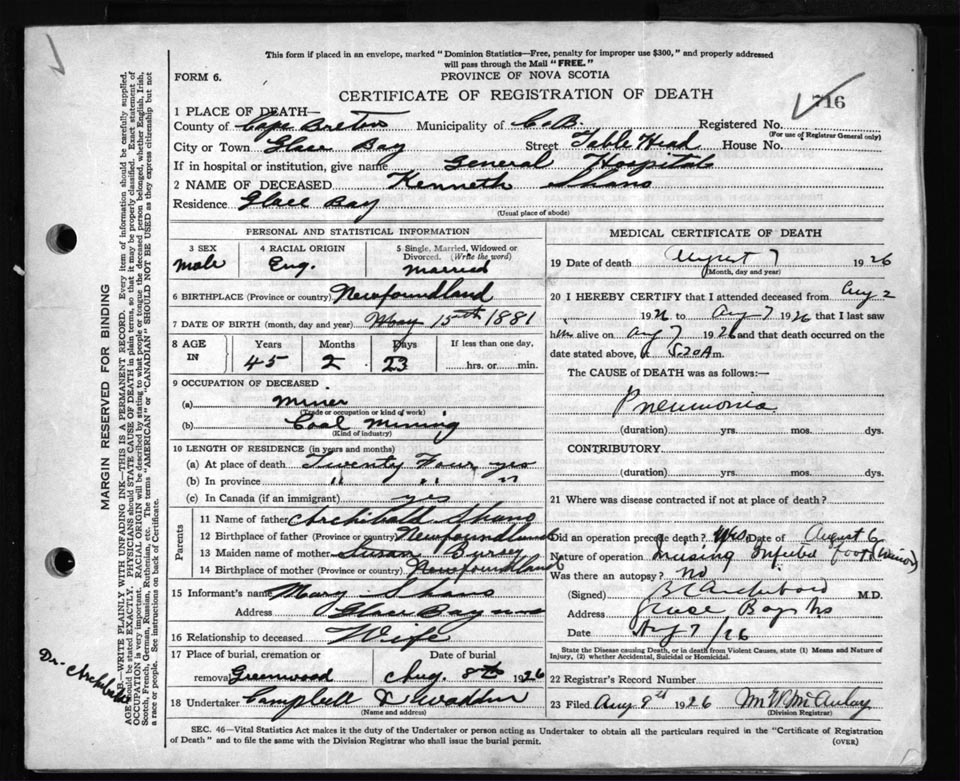 This form if placed in an envelope, marked "Dominion Statistics—Free, penalty for improper use $300," and properly addressed
will pass through the Mail "FREE."
FORM 6.
PROVINCE OF NOVA SCOTIA
CERTIFICATE OF REGISTRATION OF DEATH
716
1 PLACE OF DEATH—
County of Cape Breton Municipality of C.B. Registered No.
(For use of Registrar General only)
City or Town Glace Bay Street Table Head House No.
If in hospital or institution, give name General Hospital
2 NAME OF DECEASED Kenneth Shano
Residence Glace Bay
(Usual place of abode)
PERSONAL AND STATISTICAL INFORMATION
3 SEX 4 RACIAL ORIGIN 5 Single, Married, Widowed or
Divorced. (Write the word)
Male Eng. Married
6 BIRTHPLACE (Province or country) Newfoundland
7 DATE OF BIRTH (month, day and year) May 15th 1881
8 AGE IN Years Months Days If less than one day,
45 2 23 hrs. or min.
9 OCCUPATION OF DECEASED
(a) Miner
(Trade or occupation or kind of work)
(b) Coal Mining
(Kind of industry)
10 LENGTH OF RESIDENCE (in years and months)
(a) At place of death Twenty Four yrs
(b) In province " " "
(c) In Canada (if an immigrant) yes
Parents
11 Name of father Archibald Shano
12 Birthplace of father (Province or Country) Newfoundland
13 Maiden name of mother Susan Bursey
14 Birthplace of mother (Province or Country) Newfoundland
15 Informant's name Mary Shano
Address Glace Bay
16 Relationship to deceased Wife
17 Place of burial, cremation or Date of burial
removal Greenwood Aug. 8th 1926
18 Undertaker Campbell &
(Name and address)
MEDICAL CERTIFICATE OF DEATH
19 Date of death August 7 1926
(Month, day and year)
20 I HEREBY CERTIFY that I attended deceased from Aug 2
1926 to Aug 7 1926 that I last saw
him alive on Aug 7 1926 and that death occurred on the
date stated above, 5.20 A m.
The CAUSE of DEATH was as follows:—
Pneumonia
(duration) yrs. mos. dys.
CONTRIBUTORY.
(duration) yrs. mos. dys.
21 Where was disease contracted if not at place of death?
Did an operation precede death? Yes Date of August 6
Nature of operation foot (minor)
Was there an autopsy? No
(Signed) Archibald M.D.
Address Glace Bay N.S.
Date Aug 7/26
State the Disease causing Death, or in death from Violent Causes, state (1) Means and Nature of
Injury, (2) whether Accidental, Suicidal or Homicidal.
22 Registrar's Record Number
23 Filed Aug 9th 1926
(Division Registrar)
SEC. 46—Vital Statistics Act makes it the duty of the Undertaker or person acting as Undertaker to obtain all the particulars required in the "Certificate of Registration
of Death" and to file the same with the Division Registrar who shall issue the burial permit.
(OVER)
MARGIN RESERVED FOR BINDING
WRITE PLAINLY WITH UNFADING INK—THIS IS A PERMANENT RECORD. Every item of information should be carefully supplied.
AGE should be stated EXACTLY. PHYSICIANS should STATE CAUSE OF DEATH in plain terms, so that it may be properly classified. Exact statement of
OCCUPATION is very important. RACIAL ORIGIN will be described by stating to what people or tongue the deceased person belonged, whether English, Irish,
Scotch, French, German, Russian, Ruthenian, etc. The terms "AMERICAN" or "CANADIAN" SHOULD NOT BE USED as they express citizenship but not
a race or people. See instructions on back of Certificate.
Dr. Archibald